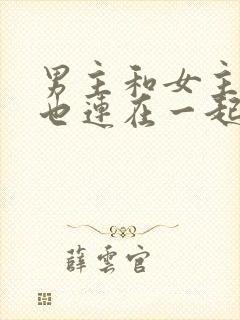 男主和女主
也連在一起
薛雲官